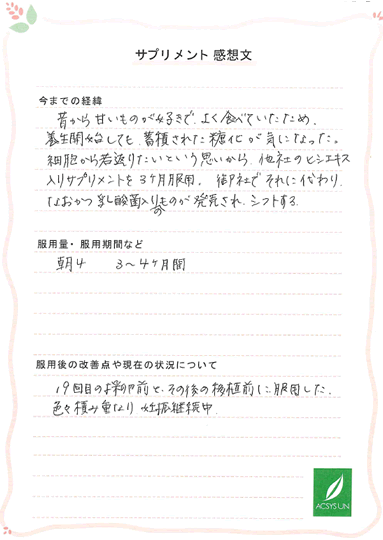 サプリメント 感想文
今までの経緯
昔から甘いものが好きで、よく食べていたため、
養生開始しても、蓄積された糖化が気になった。
細胞から若返りたいという思いから、他社のヒシエキス
入りサプリメントを3ヶ月服用。御社でそれに代わり、
なおかつ乳酸菌入りのものが発売され、シフトする。
服用量・服用期間など
朝4 3〜4ヶ月間
服用後の改善点や現在の状況について
19回目の採卵前と、その後の移植前に服用した。
色々積み重なり 妊娠継続中。
ACSYSUN